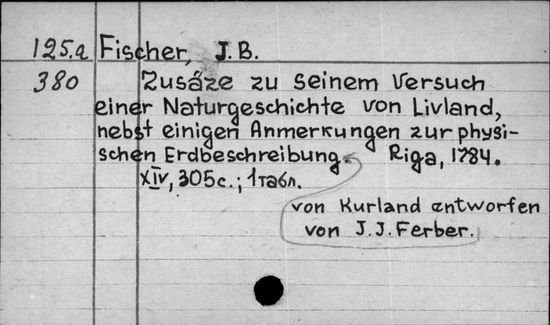 125.a Fischer, J. B.
380 Zusäze zu seinem Versuch
einer Naturgeschichte von Livland,
nebst einigen Anmerkungen zur physi-
schen Erdbeschreibung. Riga, 1784.
XIV, 305c.; 1табл.
von Kurland entworfen
von J. J. Ferber.